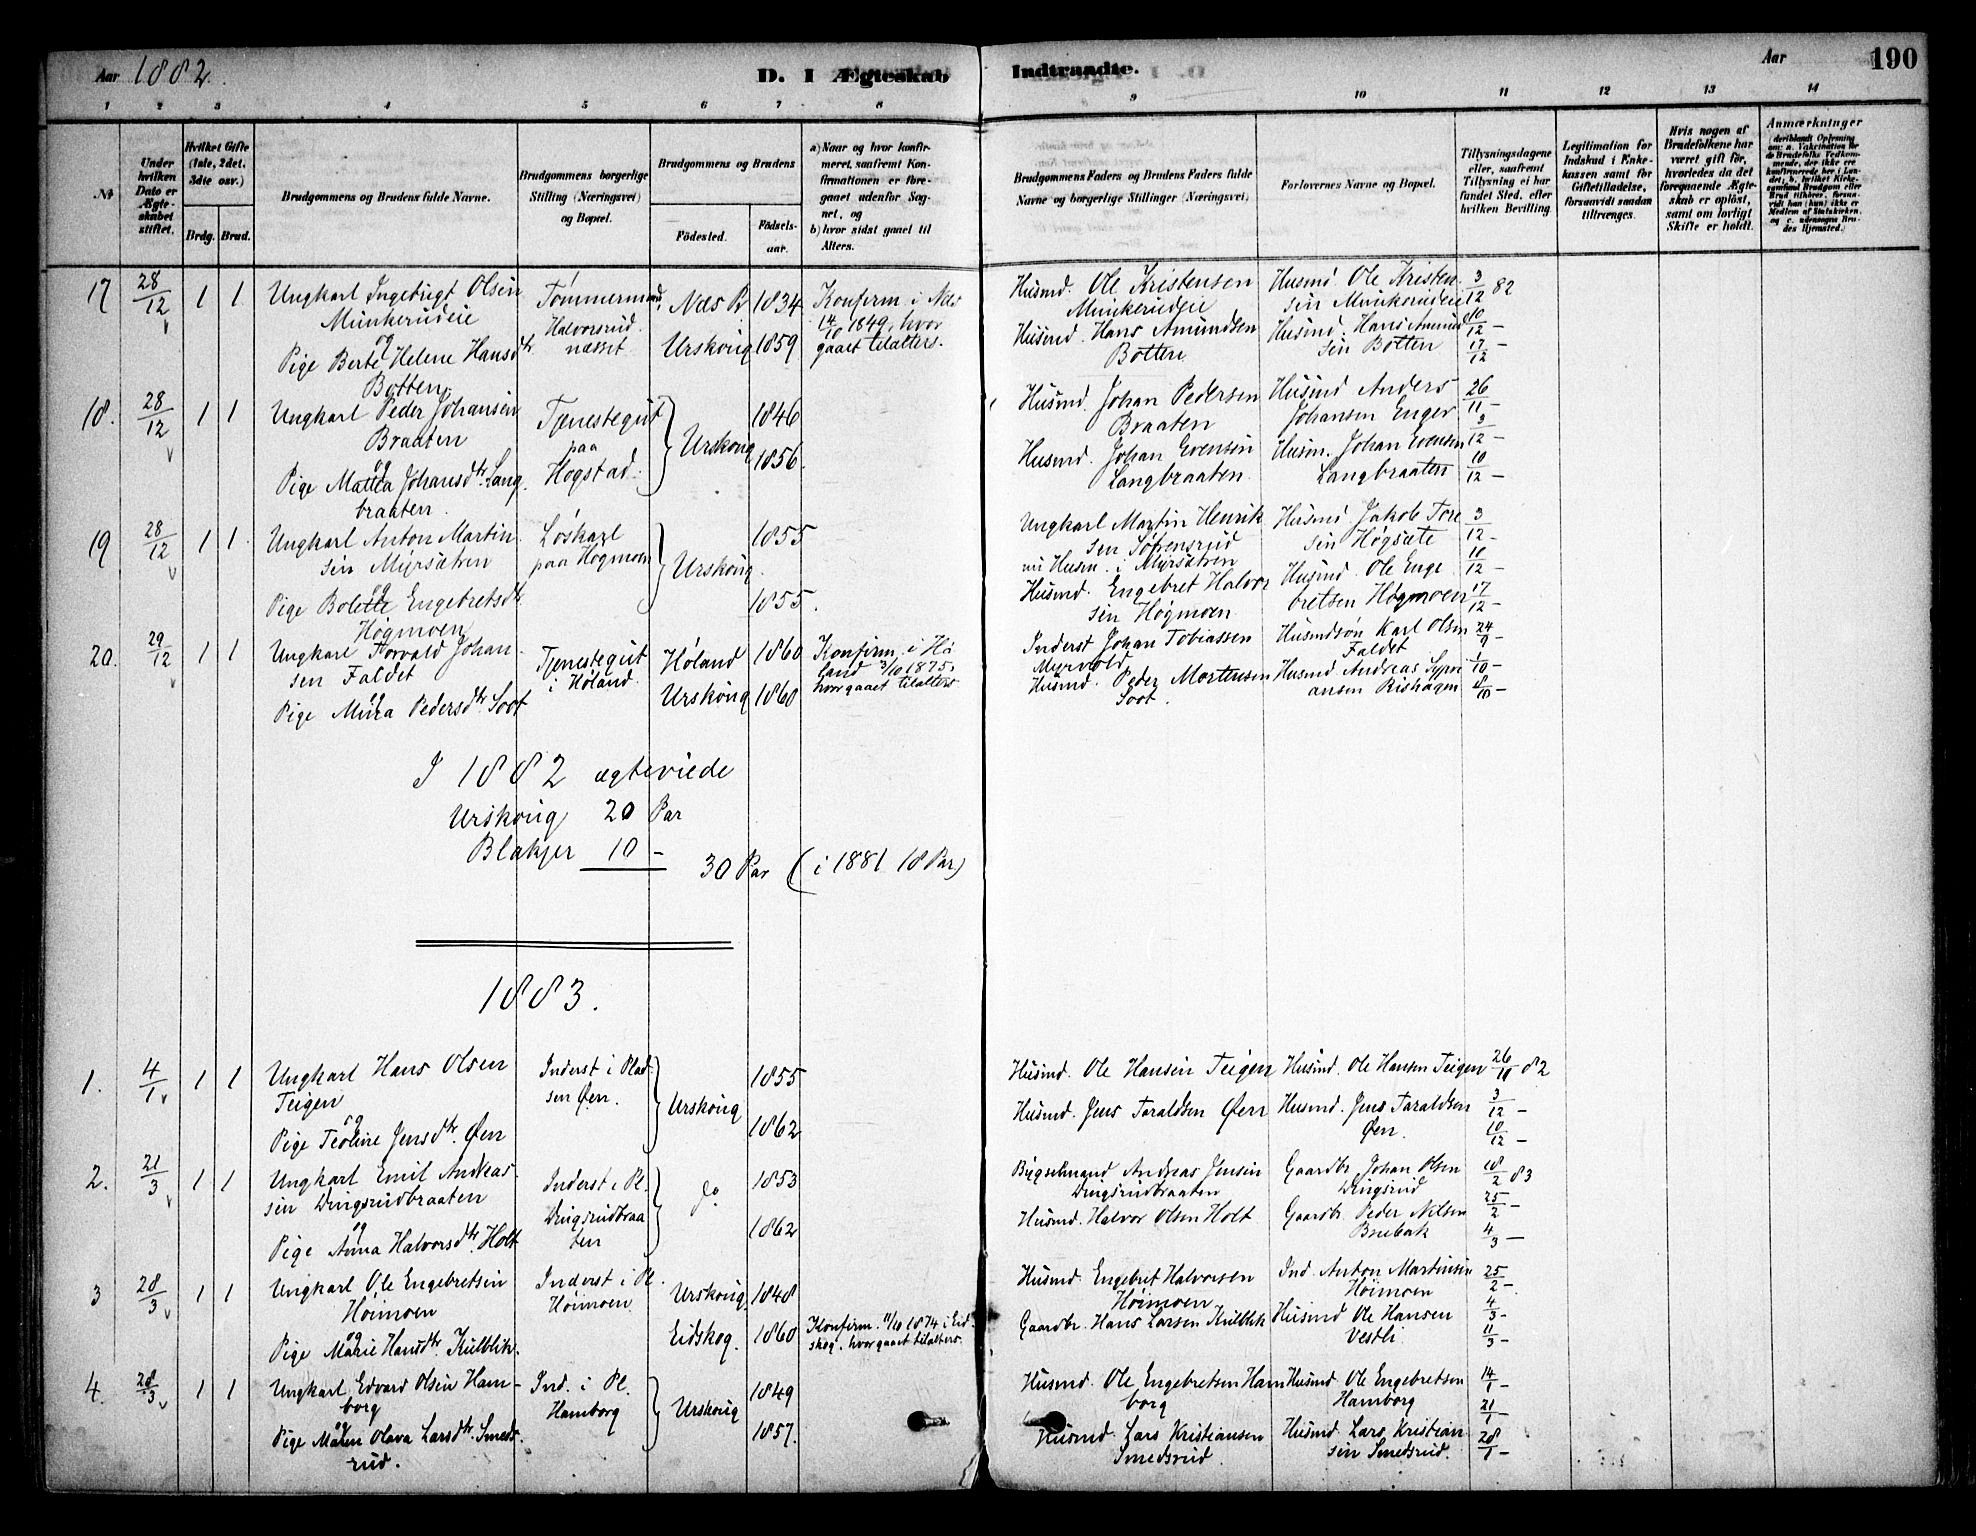 Aar 1882.
D. I Ægteskab
Indtraadte.
Aar
190
1 2 3 4 5 6 7 8
8 9 10 11 12 13 14
№
Under hvilken Dato er Ægteskabet stiftet.
Hvilket Gifte (1ste, 2det, 3die osv.)
Brdg. Brud.
Brudgommens og Brudens fulde Navne.
Brudgommens borgerlige Stilling (Næringsvei) og Bopæl.
Brudgommens og Brudens
Födested.
Födsels-aar.
a) Naar og hvor konfirmeret, saafremt Konfirmationen er foregaaet udenfor Sognet, og
b) hvor sidst gaaet til Alters.
Brudgommens Faders og Brudens Faders fulde Navne og borgerlige Stillinger (Næringsvei)
Forlovernes Navne og Bopæl.
Tillysningsdagene eller, saafremt Tillysning ei har fundet Sted, efter hvilken Bevilling.
Legitimation for Indskud i Enkekassen samt for Giftetilladelse, forsaavidt saadan tiltrænges.
Hvis nogen af Brudefolkene har været gift för, hvorledes da det foregaaende Ægteskab er oplöst, samt om lovligt Skifte er holdt.
Anmærkninger
17 28/12 1 1 Ungkarl Ingebrigt Olsen
Munkerudeie
og
Pige Berte Helene Hansdtr
Botten
Tømmermand
Halvorsrud
næsset
Næs Pr 1834
Urskoug 1859
Konfirm. i Næs
14/10 1849, hvor
gaaet tilalters.
Husmd. Ole Kristensen
Munkerudeie
Husmd. Hans Amundsen
Botten
Husmd Ole Kristen
sen Munkerudeie
Husmd. Hans Amund
sen Botten
3/12 82
10/12 –
17/12 –
18. 28/12 1 1 Ungkarl Peder Johansen
Braaten
og
Pige Mattea Johansdtr. Lang
braaten.
Tjenestegut
paa
Hogstad.
Urskoug
1846
1856.
Husmd. Johan Pedersen
Braaten
Husmd. Johan Evensen
Langbraaten.
Husmd Anders
Johansen Enger
Husm. Johan Evensen
Langbraaten
26/11 –
3/12 –
10/12 –
19 28/12 1 1 Ungkarl Anton Martin
sen Myrsætren
og
Pige Bolette Engebretsdtr
Høgmoen
Løskarl
paa Høgmoen
Urskoug.
1855
1855.
Ungkarl Martin Henrik
sen Sørensrud
nu Husm. i Myrsætren
Husmd. Engebret Halvor
sen Høgmoen
Husmd Jakob Tore
sen Høgsæte
Husmd. Ole Enge
bretsen Høgmoen
3/12 –
10/12 –
17/12 –
20. 29/12 1 1 Ungkarl Torvald Johan
sen Faldet
og
Pige Mina Pedersdtr. Soot
Tjenestegut
i Høland.
Høland 1860
Urskoug 1860
Konfirm. i Hø
land 3/10 1875,
hvor gaaet tilalters.
Inderst Johan Tobiassen
Myrvold
Husmd. Peder Mortensen
Soot.
Husmdsøn Karl Olsen
Faldet
Husmd Andreas Sypri
ansen Rishagen
24/9 –
1/10 –
8/10 –
I 1882 ægteviede
Urskoug 20 Par
Blakjer 10 –
30 Par (i 1881 18 Par)
1883.
1. 4/1 1 1 Ungkarl Hans Olsen
Teigen
og
Pige Teoline Jensdtr. Øen
Inderst i Plad
sen Øen.
Urskoug
1855
1862
Husmd. Ole Hansen Teigen
Husmd. Jens Taraldsen Øen
Husmd. Ole Hansen Teigen
Husmd. Jens Taraldsen
Øen.
26/11 82
3/12 –
10/12 –
2. 21/3 1 1 Ungkarl Emil Andreas
sen Dingsrudbraaten
og
Pige Anna Halvorsdtr. Holt
Inderst i Pl.
Dingsrudbraa
ten
do
1853
1862
Bygselmand Andreas Jensen
Dingsrudbraaten
Husmd. Halvor Olsen Holt
Gaardbr. Johan Olsen
Dingsrud
Gaardbr. Peder Nilsen
Brubak
18/2 83
25/2 –
4/3 –
3 28/3 1 1 Ungkarl Ole Engebretsen
Høimoen
og
Pige Marie Hansdtr. Kulblik.
Inderst i Pl.
Høimoen
Urskoug. 1848
Eidskog. 1860
Konfirm. 11/10 1874 i Eid
skog, hvor gaaet tilalters.
Husmd. Engebret Halvorsen
Høimoen
Gaardbr. Hans Larsen Kulblik
Ind. Anton Martinsen
Høimoen
Husmd Ole Hansen
Vestli
25/2 –
4/3 –
11/3 –
4. 28/3 1 1 Ungkarl Edvard Olsen Ham-
borg
og
Pige Maren Olava Larsdtr. Smeds
rud.
Ind. i Pl.
Hamborg
Urskoug
1849
1857.
Husmd. Ole Engebretsen Ham
borg
Husmd. Lars Kristiansen
Smedsrud.
Husmd Ole Engebretsen
Hamborg
Husmd. Lars Kristian
sen Smedsrud.
14/1 –
21/1 –
28/1 –